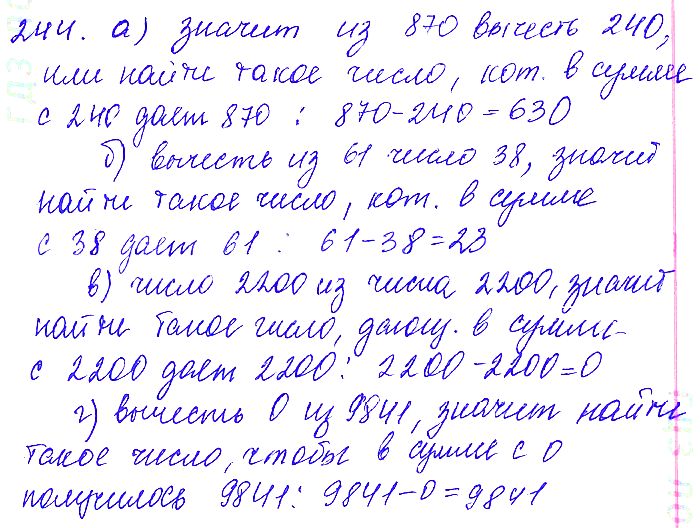 244. а) значит из 870 вычесть 240,
или найти такое число, кот. в сумме
с 240 дает 870 : 870-240=630
б) вычесть из 61 число 38, значит
найти такое число, кот. в сумме
с 38 дает 61 : 61-38=23
в) число 2200 из числа 2200, значит
найти такое число, дающ. в сумме
с 2200 дает 2200: 2200-2200=0
г) вычесть 0 из 9841, значит найти
такое число, чтобы в сумме с 0
получилось 9841: 9841-0=9841